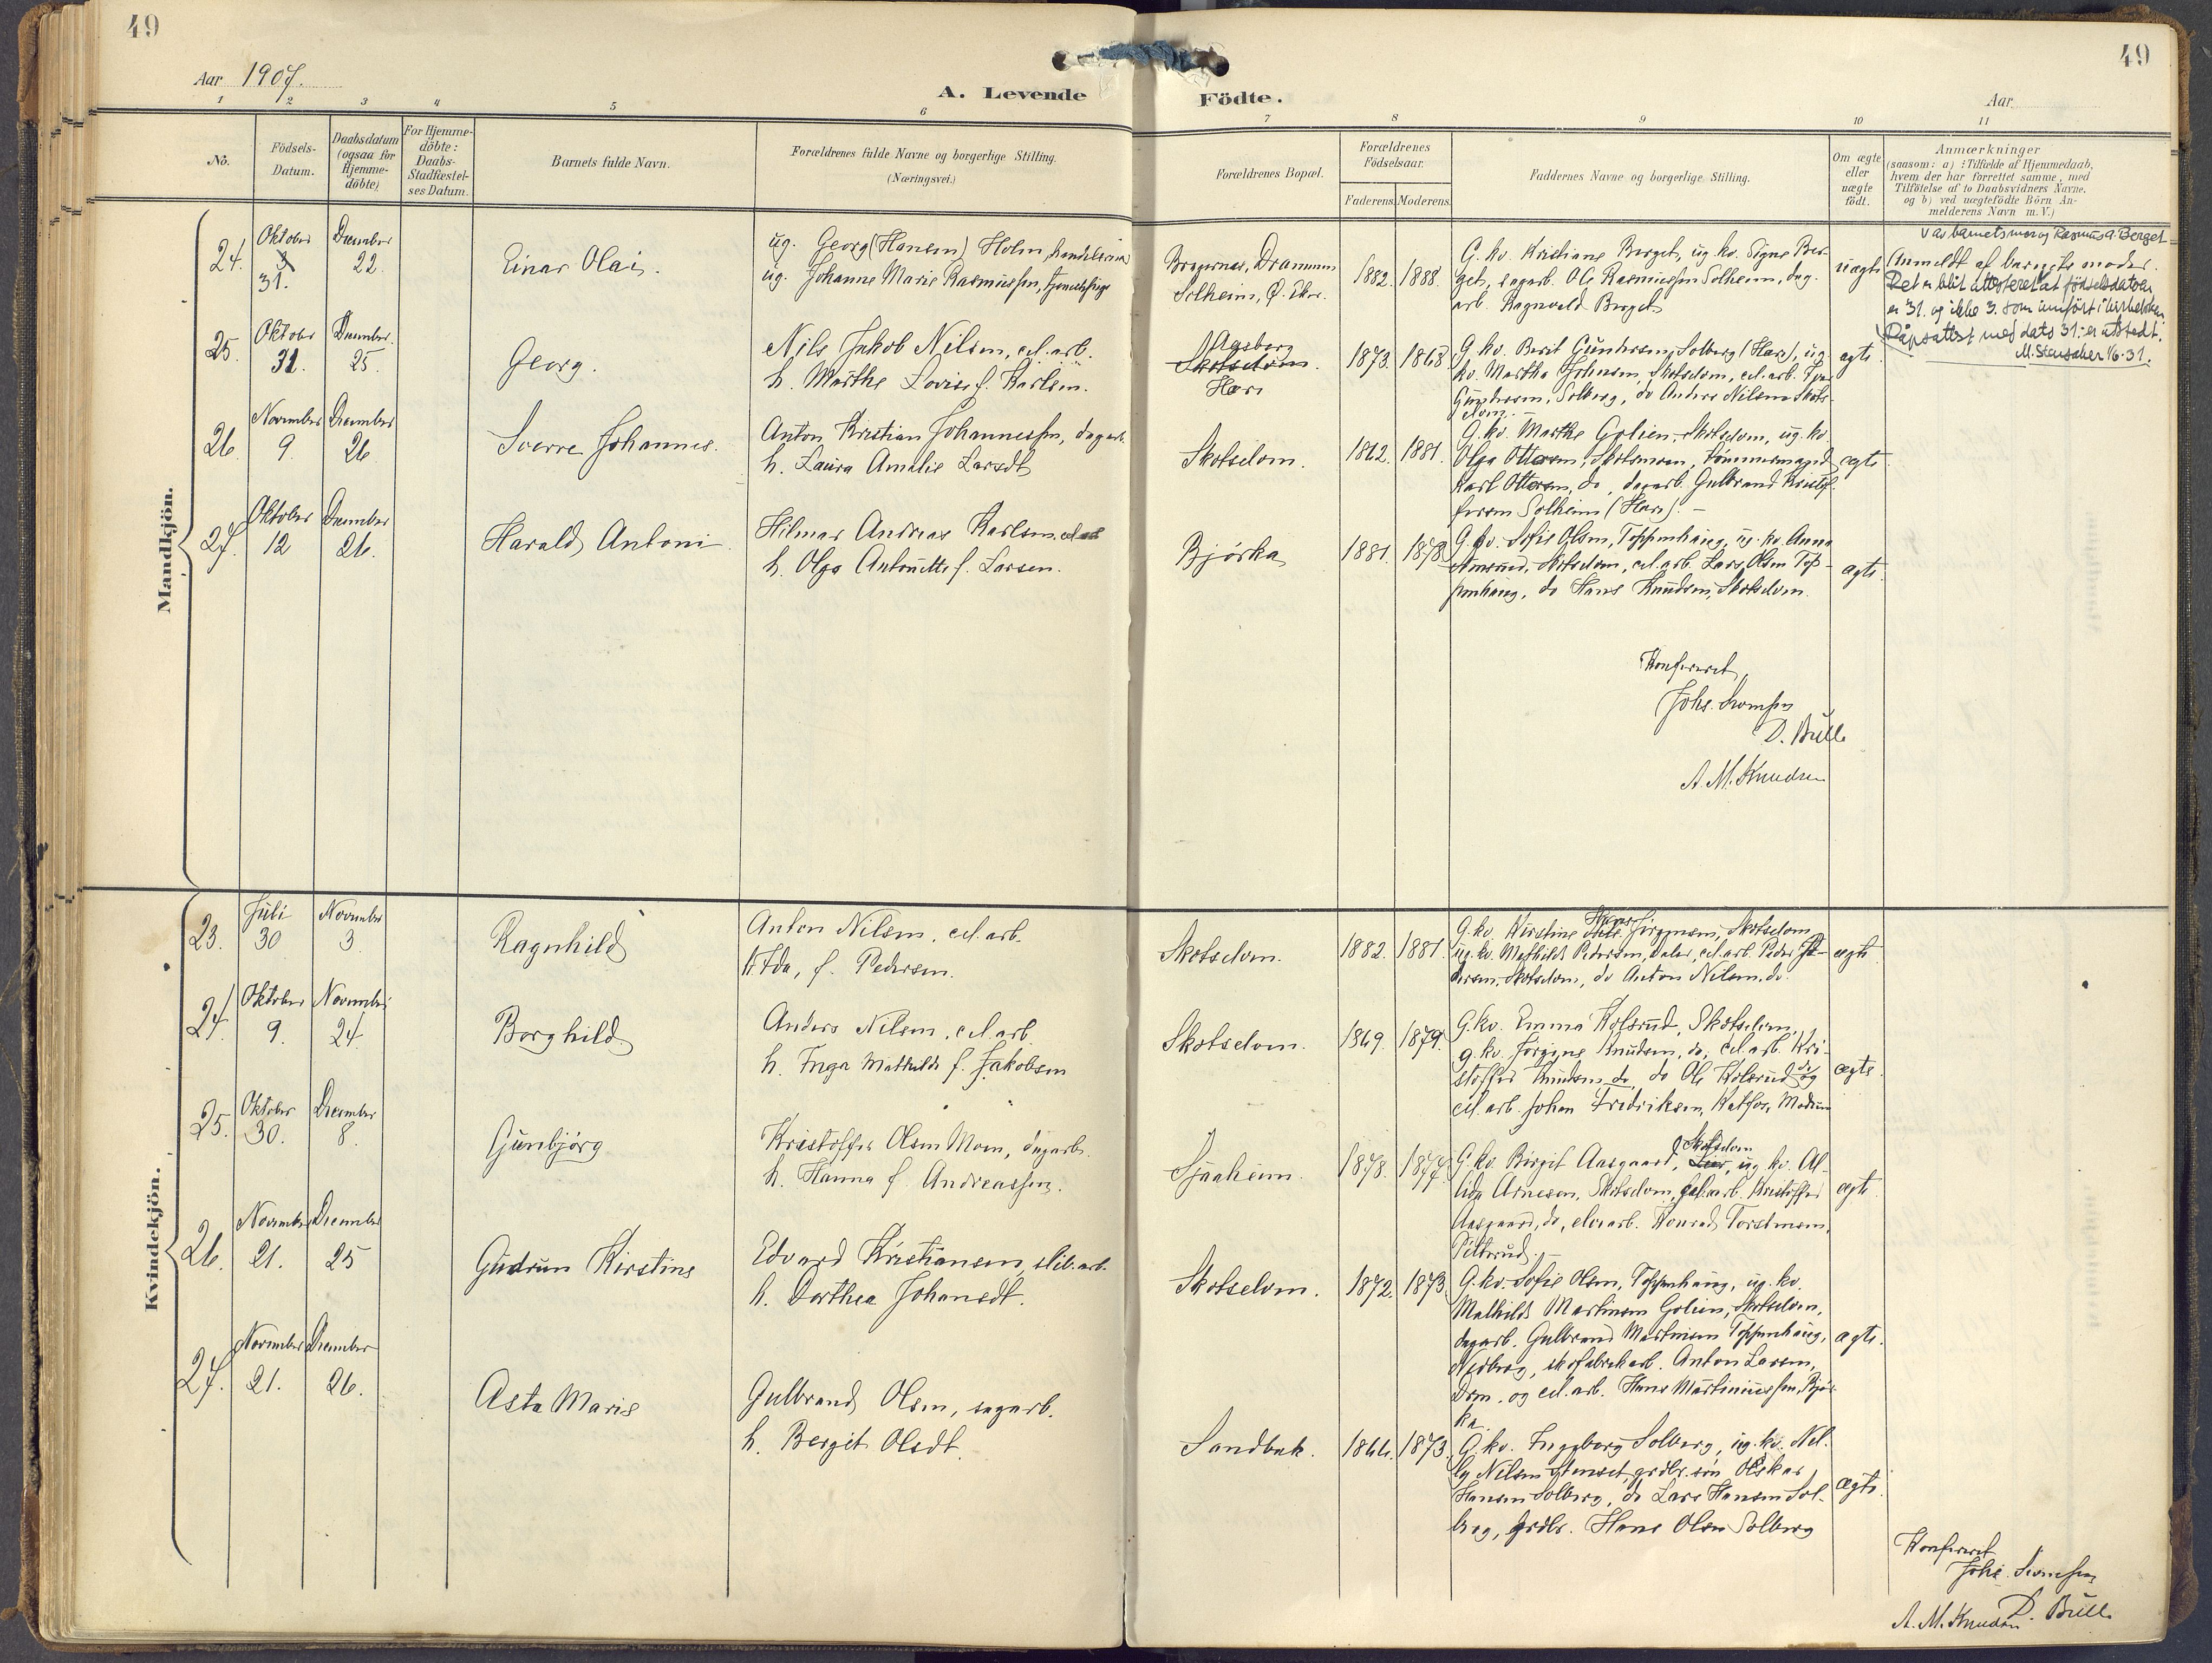 49
49
Aar 1907.
A. Levende Födte.
Aar
1 2 3 4 5 6 7 8 9 10 11
No.
Födsels-
Datum.
Daabsdatum
(ogsaa for
Hjemme-
döbte)
For Hjemme-
döbte:
Daabs-
Stadfæstel-
ses Datum.
Barnets fulde Navn.
Forældrenes fulde Navne og borgerlige Stilling.
(Næringsvei.)
Forældrenes Bopæl.
Forældrenes
Födselsaar.
Faderens. Moderens.
Faddernes Navne og borgerlige Stilling.
Om ægte
eller
uægte
födt.
Anmærkninger
(saasom: a) i Tilfælde af Hjemmedaab,
hvem der har forrettet samme, med
Tilföielse af to Daabsvidners Navne.
og b) ved uægtefödte Börn An-
melderens Navn m. V.)
Mandkjön.
24.
Oktober
3
31.
December
22.
Einar Olai.
ug. Georg (Hansen) Holm,
ug. Johanne Marie Rasmussen, tjenestepige
Bragernes, Drammen
Solheim, Ø. Eker.
1882. 1888.
G. kv. Kristiane Berget, ug. kv. Signe Ber-
get, sagarb. Ole Rasmussen Solheim, dag-
arb. Ragnvald Berget
uægte
v/as barnets mor og Rasmus A. Berget
Anmeldt af barnets moder.
Det er blit attesteret at fødselsdatoen
er 31. og ikke 3. som innført i kirkeboken
Dåpsattest med dato 31. er utstedt.
M. Stensaker 1/6-31.
25.
Oktober
31.
December.
25.
Georg.
Nils Jakob Nilsen, cel. arb.
h. Marthe Lovise f. Karlsen.
Aasberg
Skotselven.
Hære
1873. 1868
G. kv. Berit Gundersen, Solberg (Hære), ug.
kv. Martha Johnsen, Skotselven, cel. arb.
Gundersen, Solberg, do Anders Nilsen Skots-
elven.
ægte.
26.
November
9
December
26
Sverre Johannes.
Anton Kristian Johannessen, dagarb.
h. Laura Amalie Larsdt
Skotselven.
1862. 1881.
G. kv. Marthe Golien, Skotselven, ug. kv.
Olga Ottersen, Skotsmoen, tömmermand
Karl Ottersen, do, dagarb. Gulbrand Kristof-
fersen Solheim (Hære). –
ægte
27.
Oktober
12
December
26.
Harald Antoni
Hilmar Andreas Karlsen, cel arb
h. Olga Antonette f. Larsen.
Bjørka
1881. 1878.
G. kv. Sofie Olsen, Toppenhaug, ug. kv. Anna
Amrud, Skotselven, cel. arb. Lars Olsen Top-
penhaug, do Hans Knudsen, Skotselven.
ægte.
Konfereret
Johs.
D. Bull
A. M. Knudsen
Kvindekjön.
23.
Juli
30
November
3.
Ragnhild
Anton Nilsen, cel. arb.
h. Ida, f. Pedersen.
Skotselven.
1882. 1881.
G. kv. Kirstine Jörgensen, Skotselven,
ug. kv. Mathilde Pedersen, Daler, cel. arb. Peder Pe-
dersen, Skotselven, do Anton Nilsen, do.
ægte
24
Oktober
9.
November
24
Borghild
Anders Nilsen, cel. arb.
h. Inga Mathilde f. Jakobsen
Skotselven.
1869. 1879.
G. kv. Emma Kolsrud, Skotselven,
g. kv. Jörgine Knudsen, do, cel. arb. Kri-
stoffer Knudsen do, do Ole Kolsrud do og
cel. arb. Johan Fredriksen, Katfos, Modum
ægte.
25.
Oktober
30.
December
8.
Gunbjörg
Kristoffer Olsen Moen, dagarb.
h. Hanna f. Andreassen.
Sjaaheim.
1878. 1877.
G. kv. Birgit Aasgaard, Skotselven, ug. kv. Al-
vida Arnesen, Skotselven, cel. arb. Kristoffer
Aasgaard, do, elvearb. Konrad Torstensen,
Pitterud. –
ægte
26.
November
21.
December
25
Gudrun Kirstine
Edvard Kristiansen, slib. arb.
h. Dorthea Johansdt.
Skotselven.
1872. 1873.
G. kv. Sofie Olsen, Toppenhaug, ug. kv.
Mathilde Martinsen Golien, Skotselven,
dagarb. Gulbrand Martinsen Toppenhaug,
Nedberg, skofabrikarb. Anton Larsen,
Drm. og cel. arb. Hans Martiniussen, Bjør-
ka.
ægte.
27.
November
21.
December
26.
Asta Marie
Gulbrand Olsen, sagarb.
h. Bergit Olsdt.
Sandbak.
1866. 1873.
G. kv. Ingeborg Solberg, ug. kv. Nel-
ly Nilsen Stenset, grdbr. sön Oskar
Hansen Solberg, do Lars Hansen Sol-
berg, grdbr. Hans Olsen Solberg
ægte.
Konfereret
Johs.
D. Bull
A. M. Knudsen